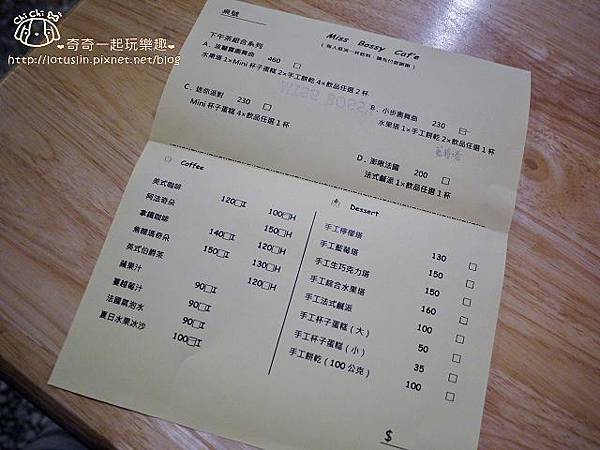 Chi Chi Bu
❤奇奇一起玩樂趣❤
http://lotuslin.pixnet.net/blog
桌號
Miss Bossy Cafe
下午茶組合系列
A. 波麗露圓舞曲 460 □
水果塔 1×Mini 杯子蛋糕 2×手工餅乾 4×飲品任選 2 杯
B. 小步圓舞曲 230 □
水果塔 1×手工餅乾 2×飲品任選 1 杯
C. 迷你派對 230 □
Mini 杯子蛋糕 4×飲品任選 1 杯
D. 澎啾法國 200 □
法式鹹派 1×飲品任選 1 杯
Coffee
美式咖啡 120□I 100□H
阿法奇朵
拿鐵咖啡 140□I 120□H
焦糖瑪奇朵 150□I 130□H
英式伯爵茶 120□H
蘋果汁 90□I
蔓越莓汁 90□I
法國氣泡水 90□I
夏日水果冰沙 100□I
Dessert
手工檸檬塔 130 □
手工藍莓塔 150 □
手工生巧克力塔 150 □
手工綜合水果塔 160 □
手工法式鹹派 100 □
手工杯子蛋糕（大） 50 □
手工杯子蛋糕（小） 35 □
手工餅乾（100公克） 100 □
$